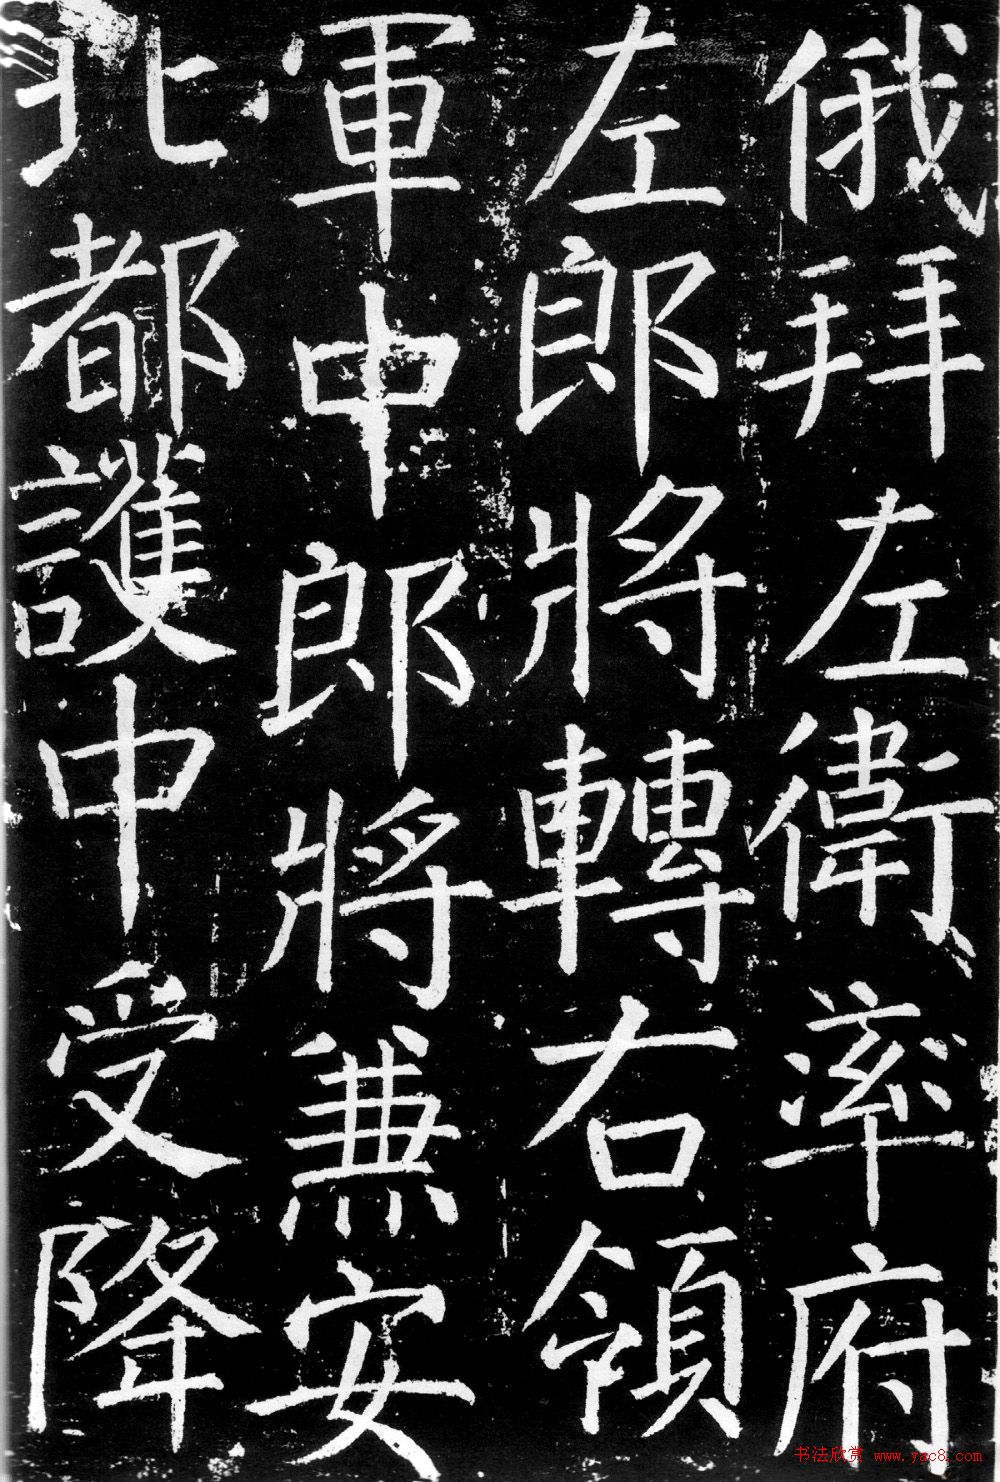 俄拜左衛率府
左郎將轉右領
軍中郎將兼安
北都護中受降
书法欣赏 www.yac8.com